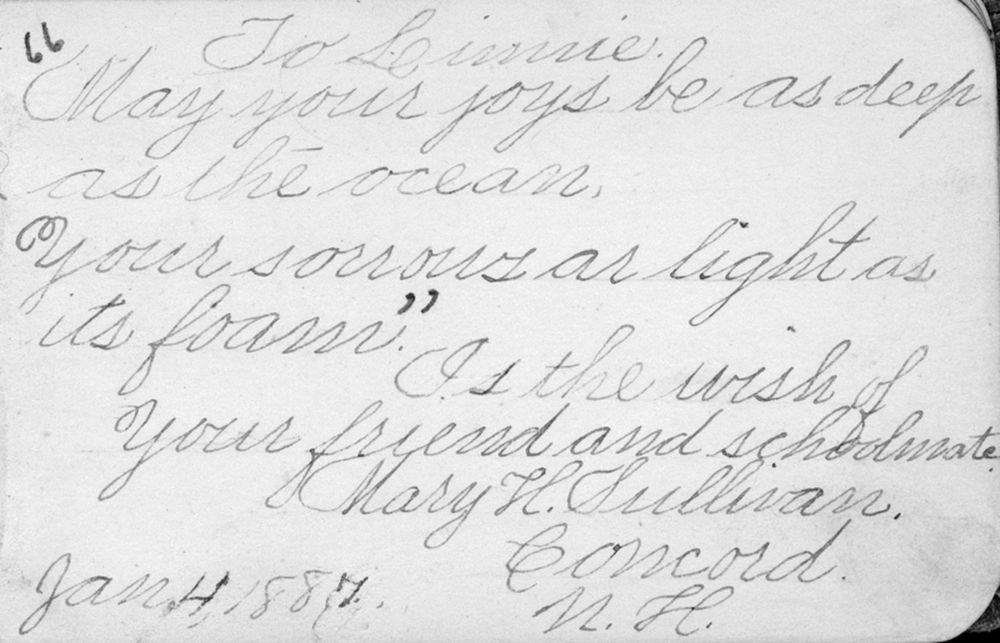 To Linnie.
"May your joys be as deep
as the ocean,
Your sorrows as light as
its foam."
Is the wish of
Your friend and schoolmate.
Mary H. Sullivan.
Concord.
N. H.
Jan 4, 1887.